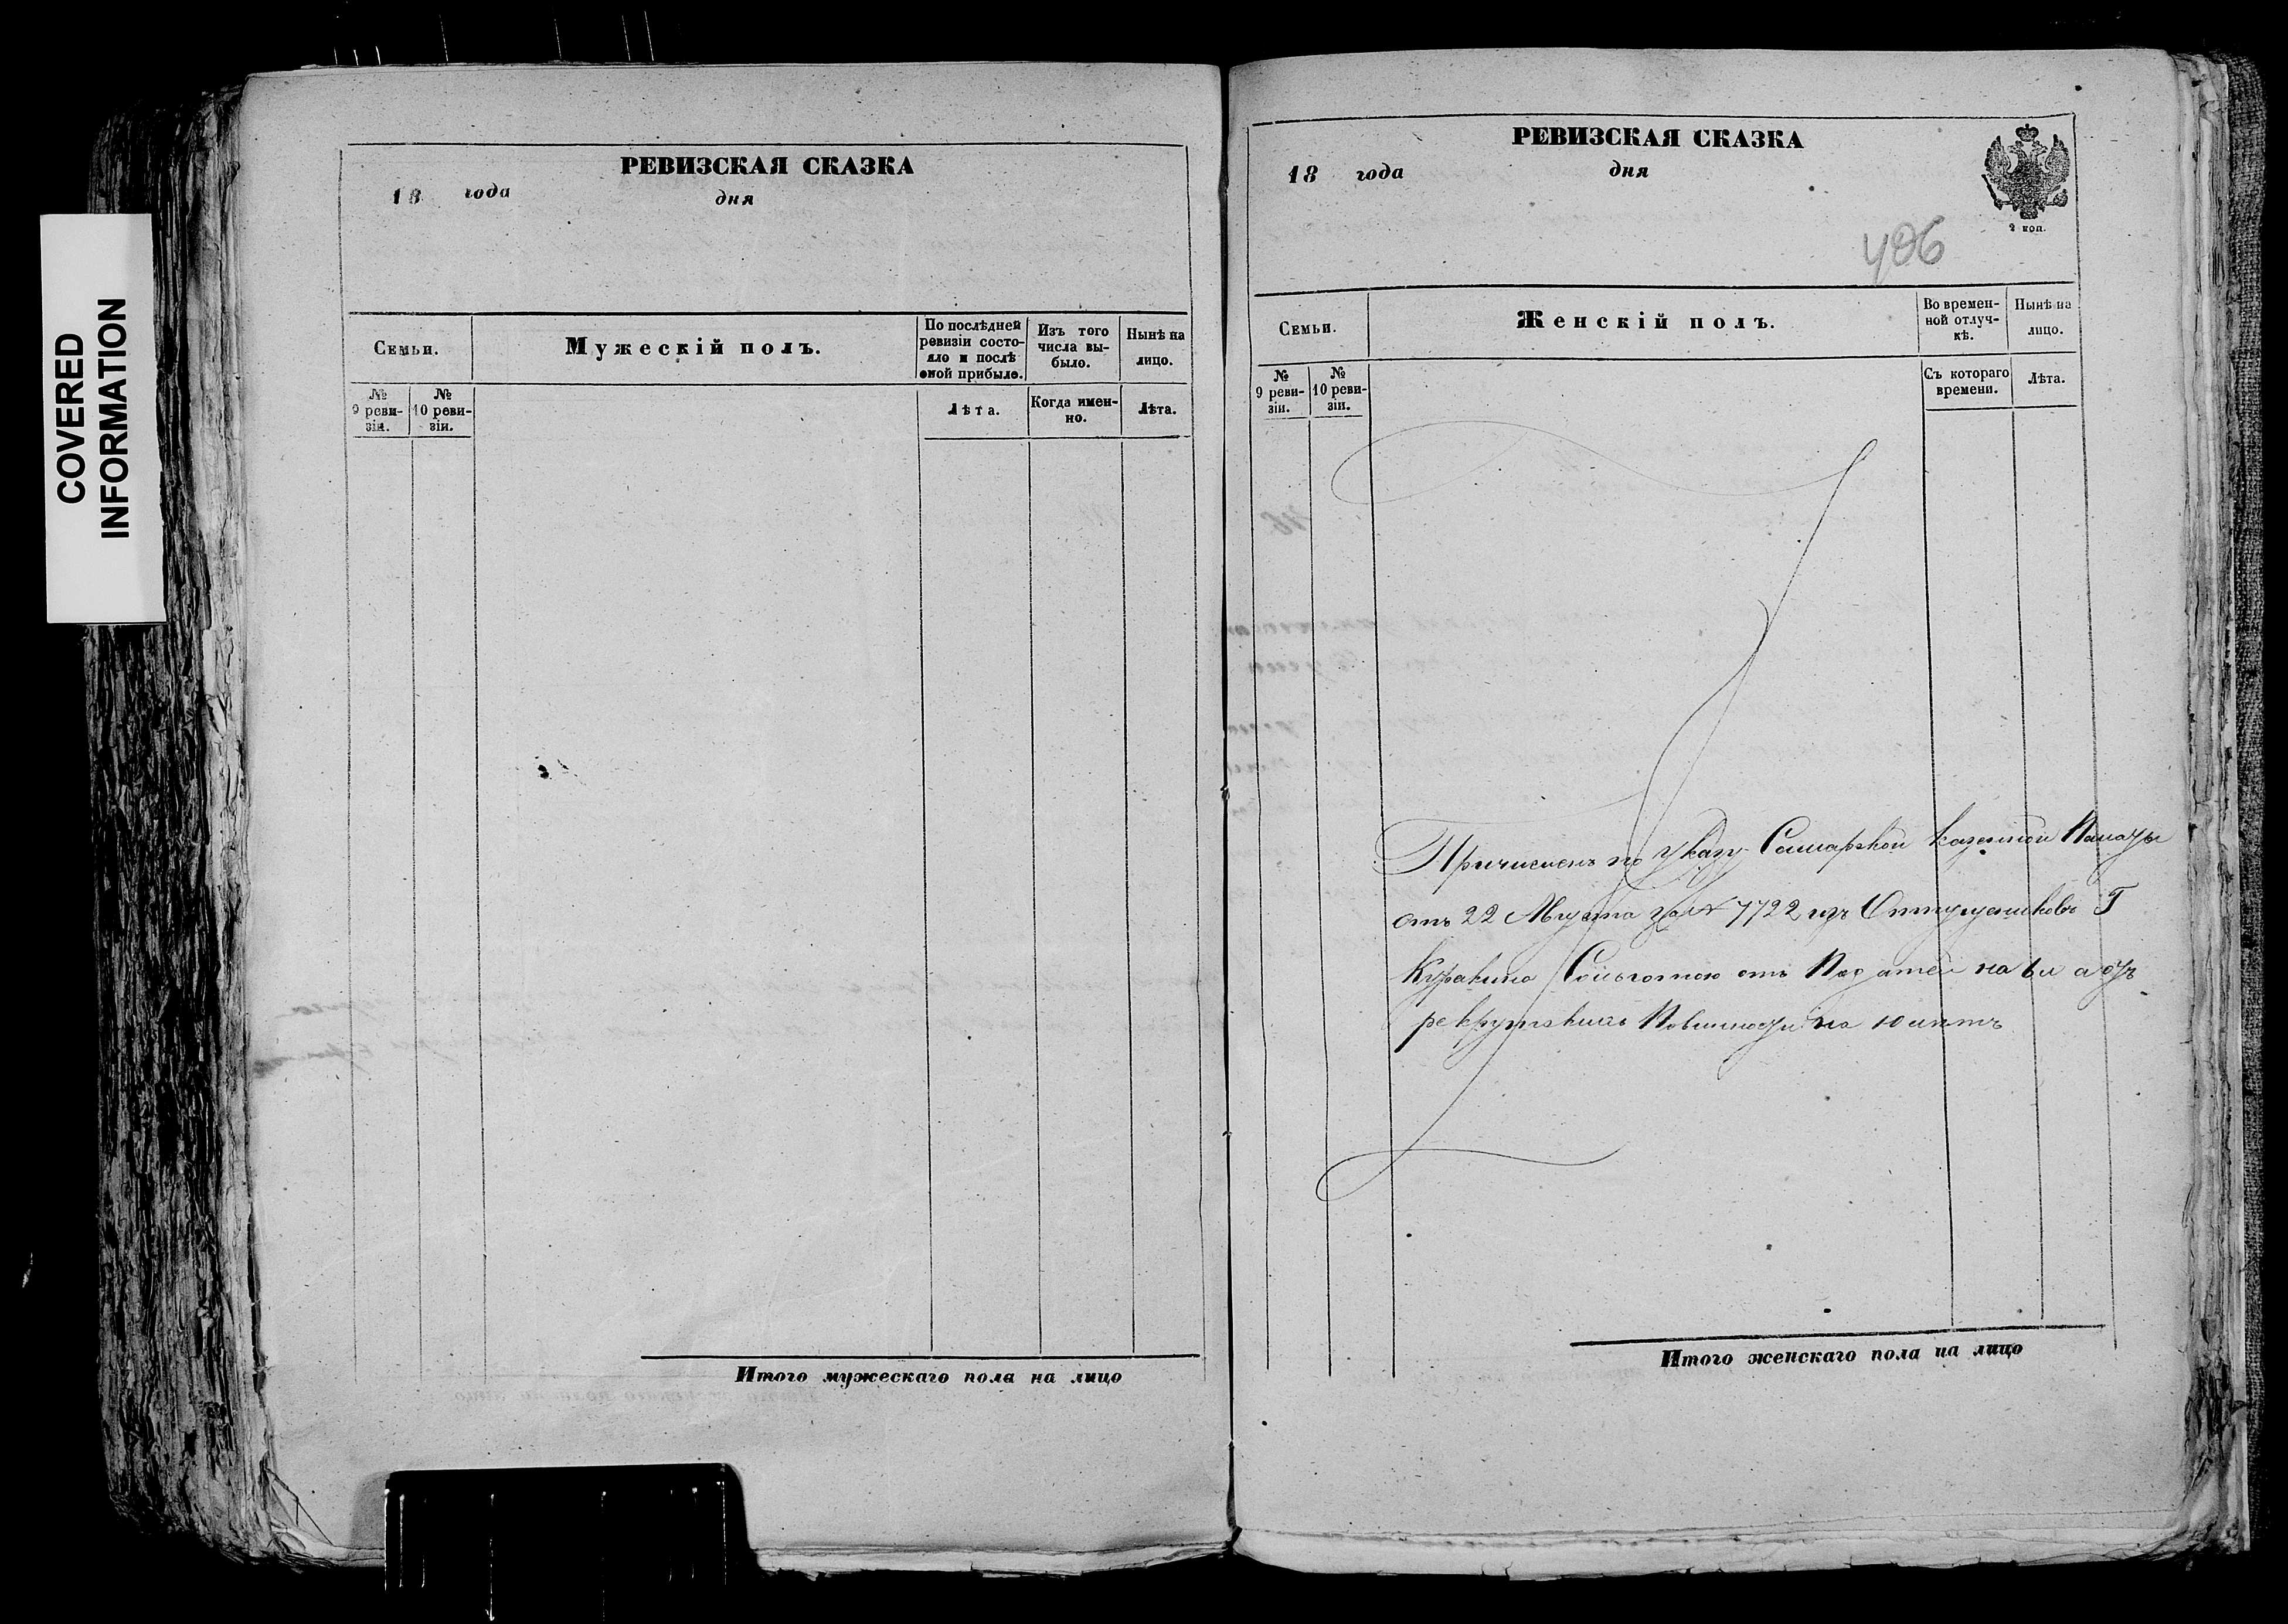 COVERED
INFORMATION
РЕВИЗСКАЯ СКАЗКА
18 года дня
Семьи.
Мужескій полъ.
По послѣдней
ревизіи состо-
яло и послѣ
оной прибыло.
Изъ того
числа вы-
было.
Нынѣ на
лицо.
№
9 реви-
зіи.
№
10 реви-
зіи.
Лѣта.
Когда имен-
но.
Лѣта.
Итого мужескаго пола на лицо
РЕВИЗСКАЯ СКАЗКА
18 года дня
2 коп.
406
Семьи.
Женскій полъ.
Во времен-
ной отлуч-
кѣ.
Нынѣ на
лицо.
№
9 реви-
зіи.
№
10 реви-
зіи.
Съ котораго
времени.
Лѣта.
Причисленъ по указу Самарской казенной Палаты
отъ 22 Августа за № 7722 изъ Отпущениковъ Г
Куракина Сольготою отъ Податей на 6 и а отъ
рекрутскихъ Повинности на 10 лѣтъ
Итого женскаго пола на лицо